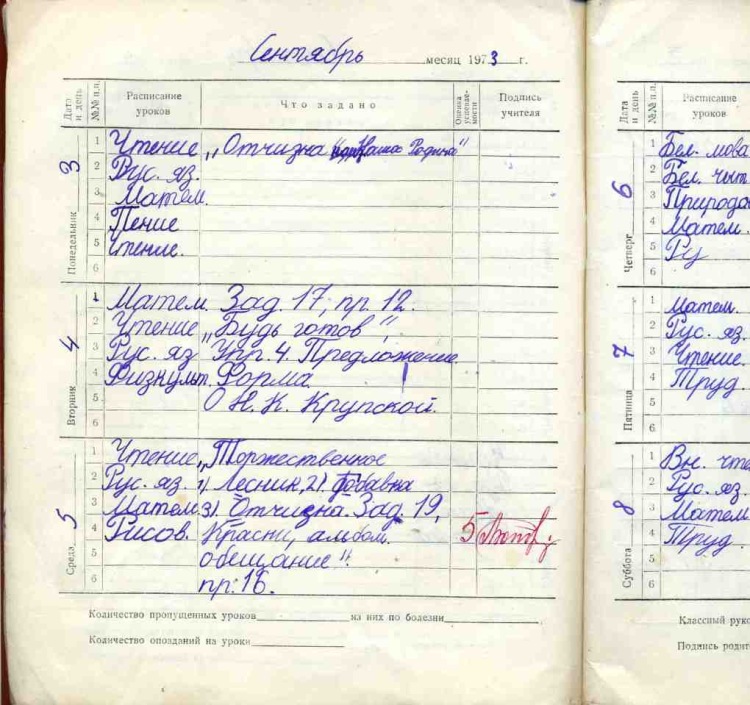 Сентябрь месяц 1973 г.
Дата и день №№ п.п. Расписание уроков Что задано Оценка успевае-мости Подпись учителя
Понедельник 3
1 Чтение „Отчизна наша Родина"
2 Рус. яз.
3 Матем.
4 Пение
5 Чтение.
6
Вторник 4
1 Матем. Зад. 17, пр. 12.
2 Чтение „Будь готов",
3 Рус. яз Упр. 4. Предложение
4 Физкульт. Форма
5 О Н. К. Крупской.
6
Среда 5
1 Чтение „Торжественное
2 Рус. яз. 1) Лесник, 2)
3 Матем. 3) Отчизна. Зад. 19,
4 Рисов. Краски, альбом. 5
5 обещание".
6 пр. 16.
Количество пропущенных уроков из них по болезни
Количество опозданий на уроки
Дата и день №№ п.п. Расписание уроков
Четверг 6
1 Бел. мова
2 Бел. чыт.
3 Природо
4 Матем.
5 Ру
6
Пятница 7
1 Матем.
2 Рус. яз.
3 Чтение.
4 Труд.
5
6
Суббота 8
1 Вн. чте
2 Рус. яз.
3 Матем
4 Труд.
5
6
Классный руко
Подпись родит